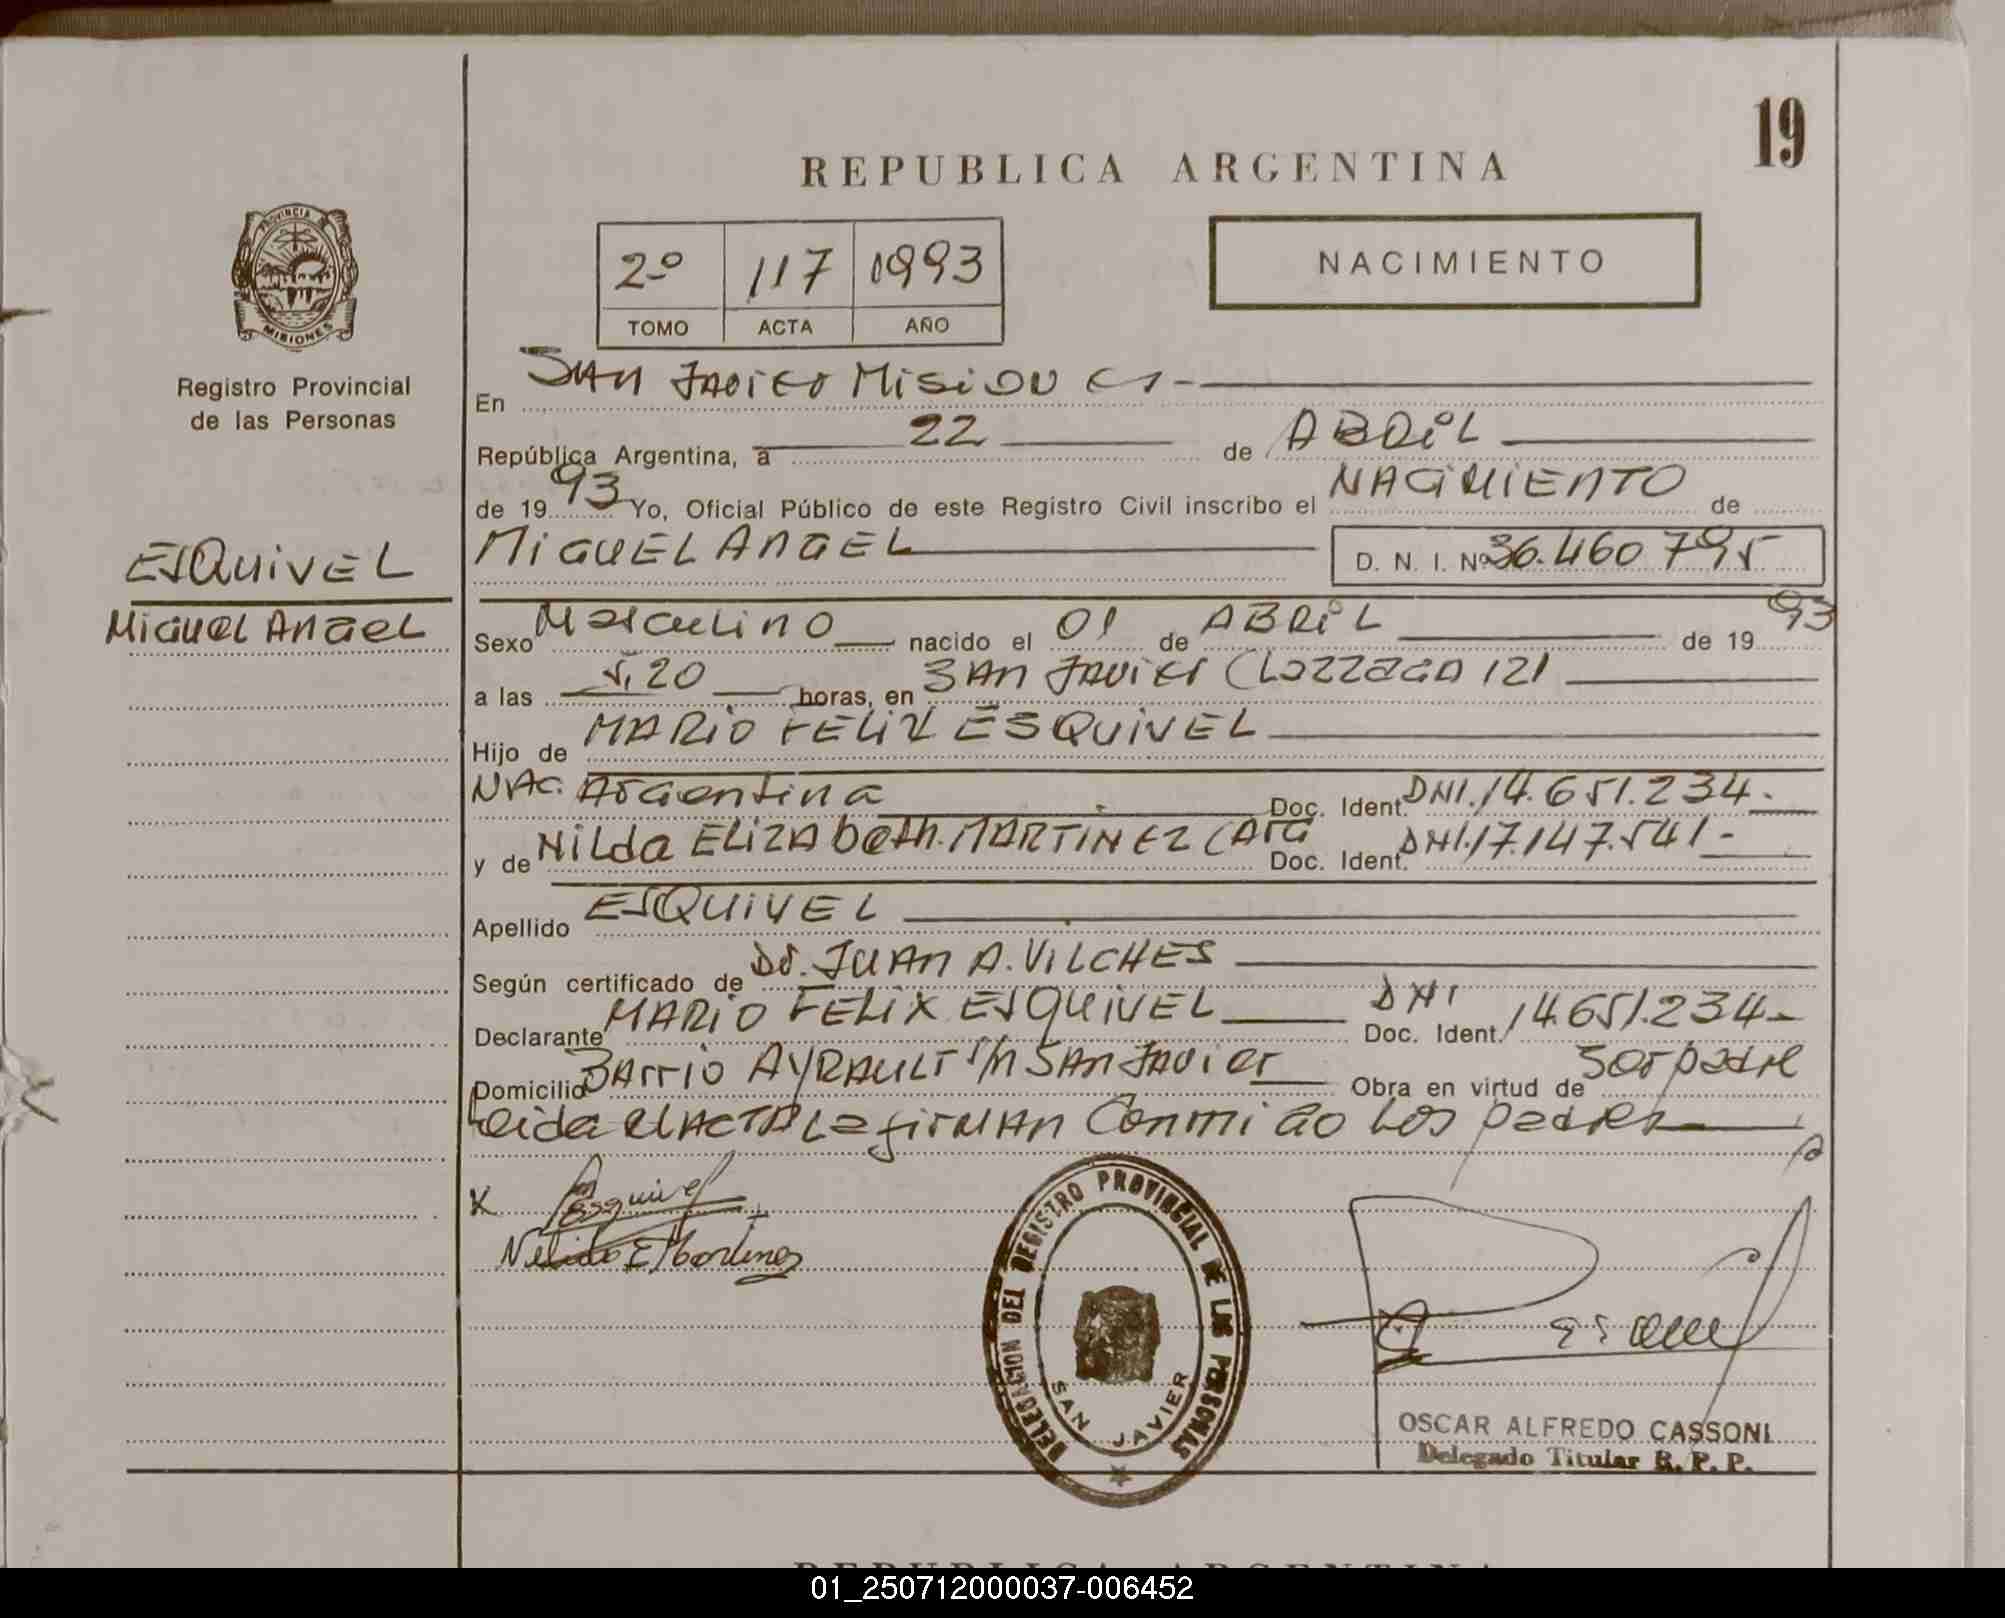 19
REPUBLICA ARGENTINA
PROVINCIA DE
MISIONES
2º 117 1993
TOMO ACTA AÑO
NACIMIENTO
Registro Provincial
de las Personas
En SAN JAVIER MISIONES-
República Argentina, a 22 de ABRIL
de 19 93 Yo, Oficial Público de este Registro Civil inscribo el NACIMIENTO de
MIGUEL ANGEL D. N. I. Nº 36.460 795
ESQUIVEL
MIGUEL ANGEL
Sexo Masculino nacido el 01 de ABRIL de 19 93
a las 5,20 horas, en SAN JAVIER (Lozzaga 121
Hijo de MARIO FELIX ESQUIVEL
NAC. Argentina Doc. Ident. DNI. 14.651.234-
y de Nilda ELIZABeth MARTINEZ (Arg Doc. Ident. DNI. 17.147.541-
Apellido ESQUIVEL
Según certificado de Dr. JUAN A. VILCHES
Declarante MARIO FELIX ESQUIVEL DNI Doc. Ident. 14.651.234-
Domicilio BArrio AYRAULT S/N SAN JAVIER Obra en virtud de Ser padre
Leida el ACTA La firmAN Conmigo Los padres
X Esquivel
Nélida E Martinez
DELEGACION DEL REGISTRO PROVINCIAL DE LAS PERSONAS
SAN JAVIER
OSCAR ALFREDO CASSONI
Delegado Titular R. P. P.
REPUBLICA ARGENTINA
01_250712000037-006452